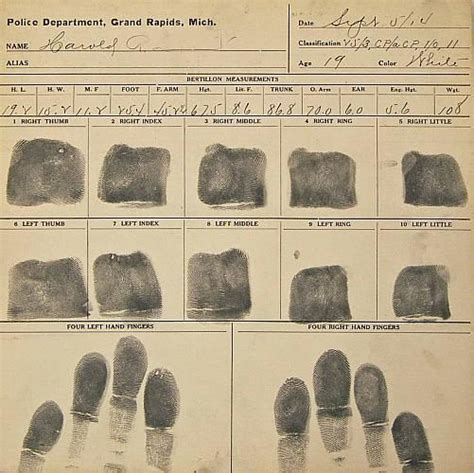 Police Department, Grand Rapids, Mich.
Date Sept 5/14
NAME Harold
Classification
ALIAS
Age 19 Color White
BERTILLON MEASUREMENTS
H. L. H. W. M. F FOOT F. ARM Hgt. Lit. F. TRUNK O. Arm EAR Eng. Hgt. Wgt.
19.2 15.2 11.2 25.4 45.2 67.5 8.6 86.8 70.0 6.0 5.6 108
1 RIGHT THUMB 2 RIGHT INDEX 3 RIGHT MIDDLE 4 RIGHT RING 5 RIGHT LITTLE
6 LEFT THUMB 7 LEFT INDEX 8 LEFT MIDDLE 9 LEFT RING 10 LEFT LITTLE
FOUR LEFT HAND FINGERS FOUR RIGHT HAND FINGERS